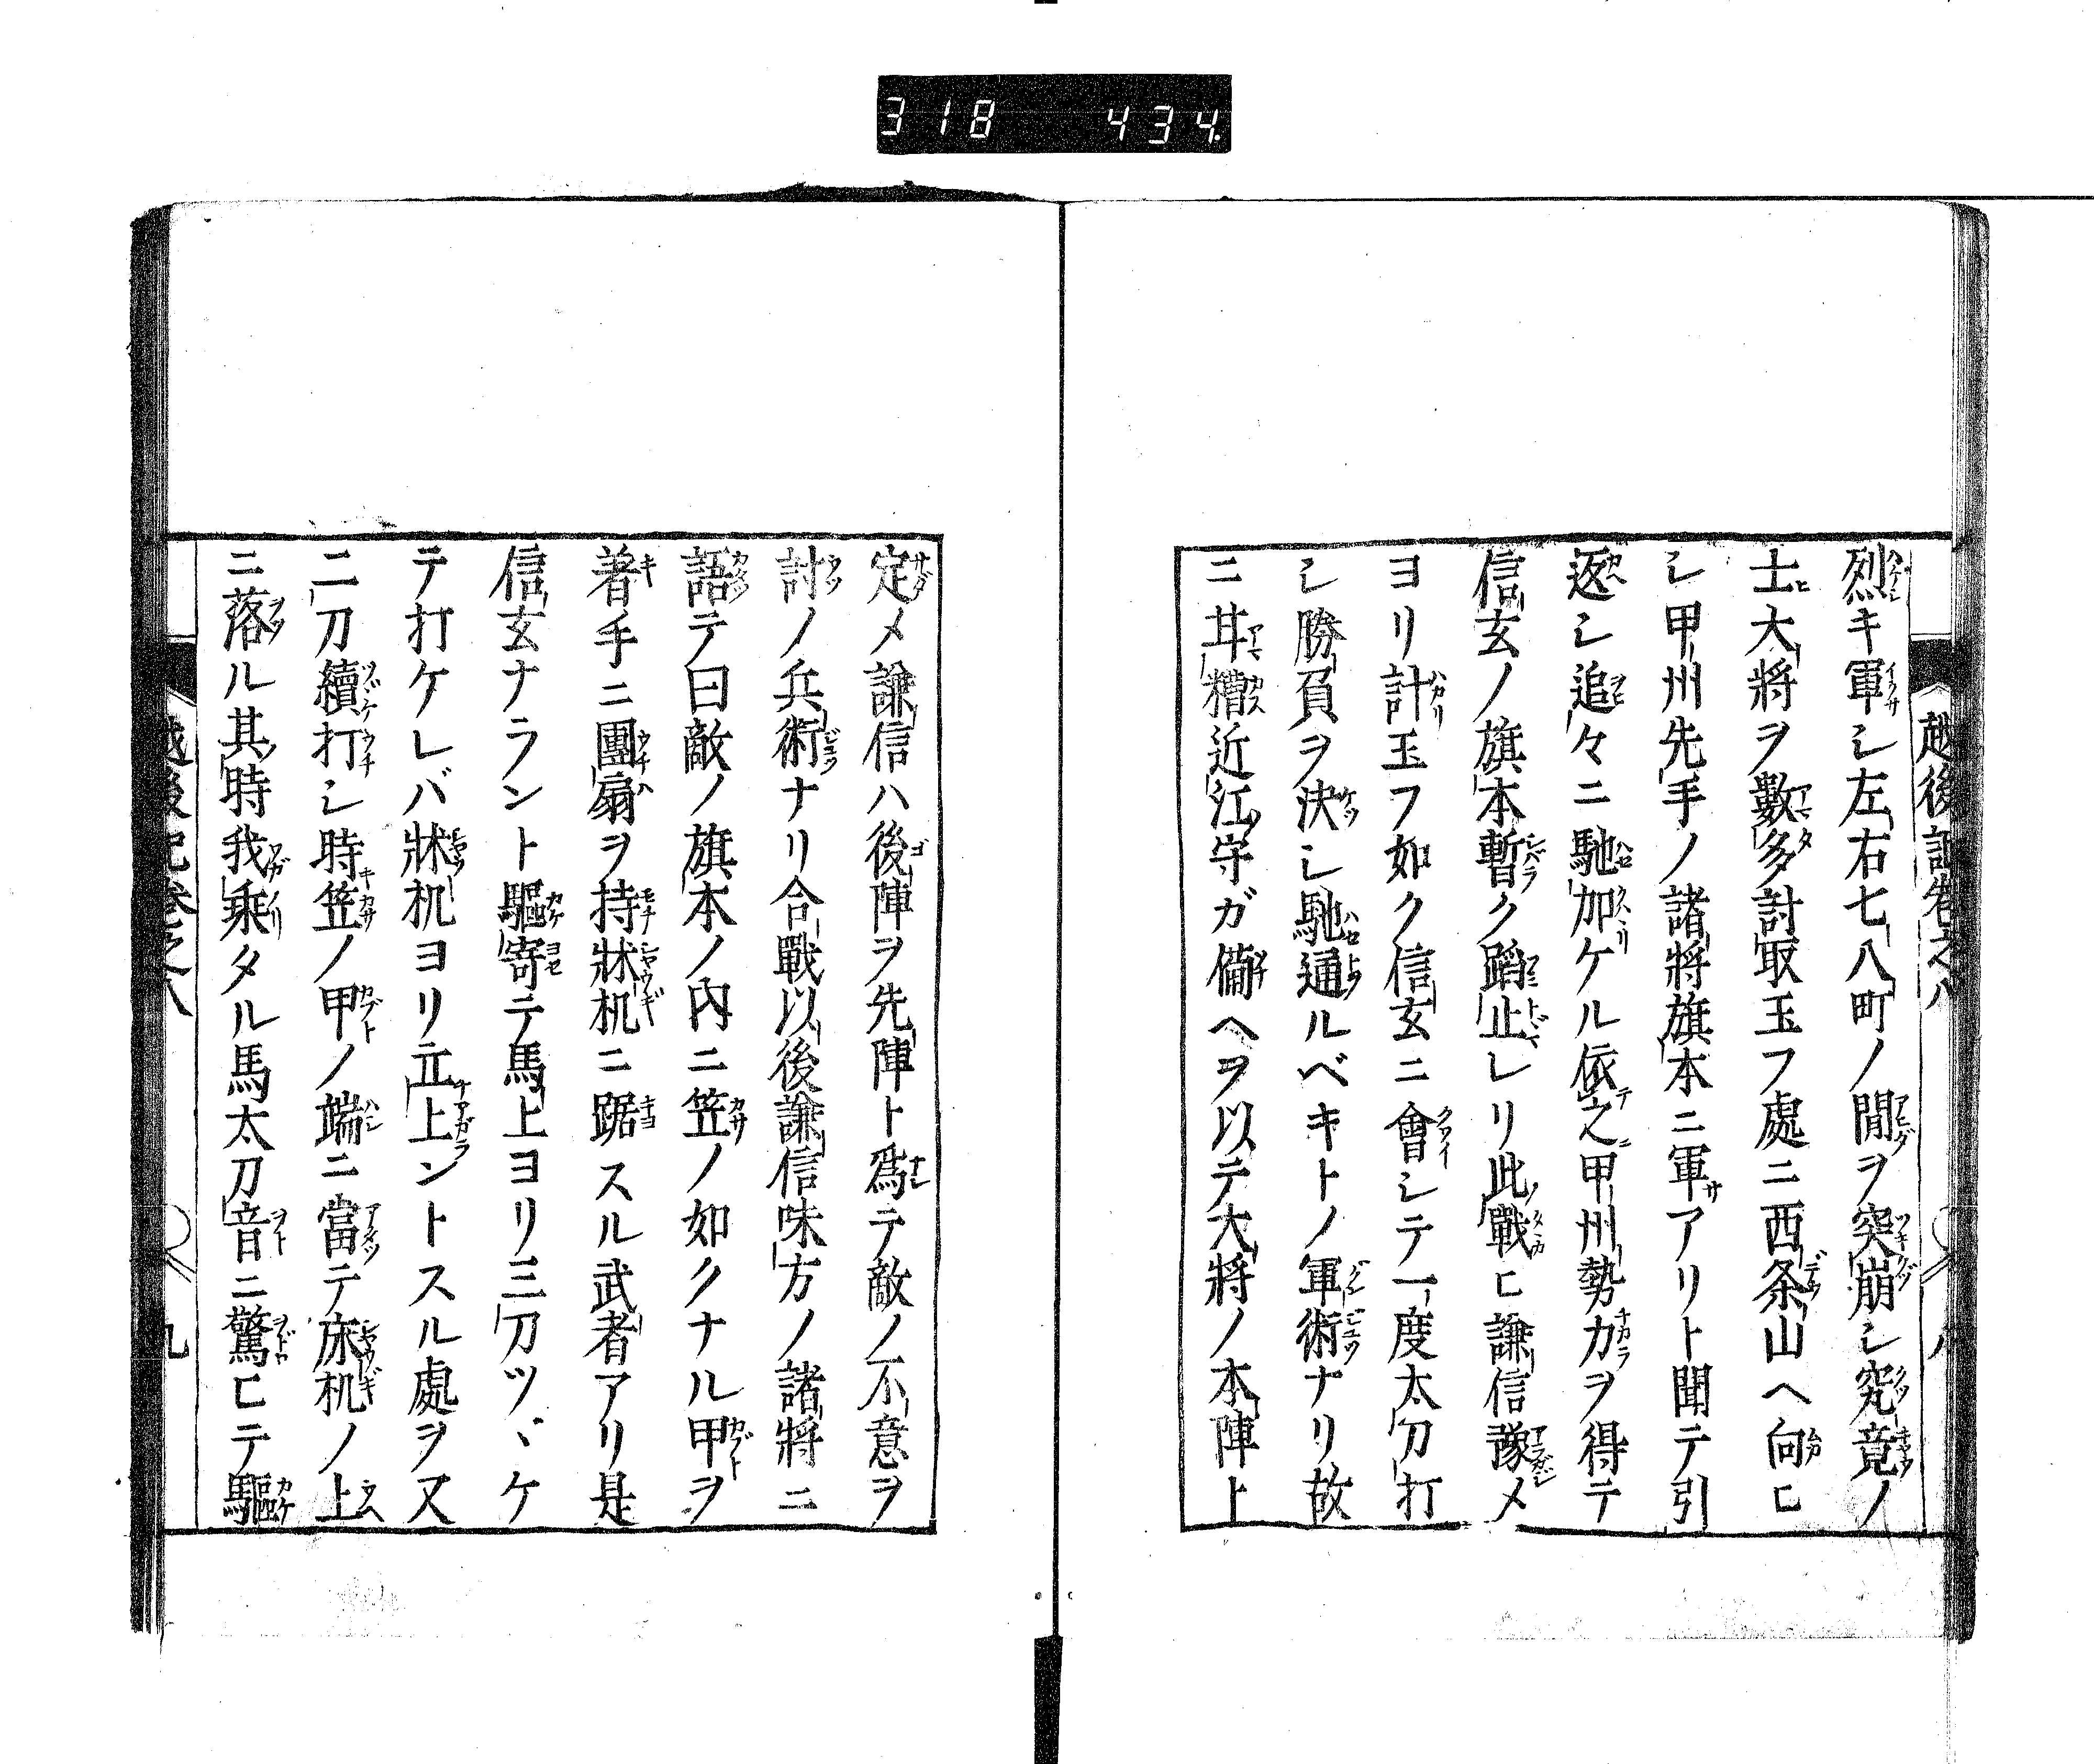 318 434.
越後記卷之八
烈キ軍シ左右七八町ノ間ヲ突崩シ究竟ノ
士大將ヲ數多討取玉フ處ニ西条山ヘ向ヒ
シ甲州先手ノ諸將旗本ニ軍アリト聞テ引
返シ追々ニ馳加ケル依之甲州勢力ヲ得テ
信玄ノ旗本暫ク蹈止レリ此戰ヒ謙信豫メ
ヨリ計玉フ如ク信玄ニ會シテ一度太刀打
シ勝負ヲ決シ馳通ルベキトノ軍術ナリ故
ニ甘糟近江守ガ備ヘヲ以テ大將ノ本陣ト
定メ謙信ハ後陣ヲ先陣ト爲テ敵ノ不意ヲ
討ノ兵術ナリ合戰以後謙信味方ノ諸將ニ
語テ曰敵ノ旗本ノ內ニ笠ノ如クナル甲ヲ
著手ニ團扇ヲ持牀机ニ踞スル武者アリ是
信玄ナラント驅寄テ馬上ヨリ三刀ツヽケ
テ打ケレバ牀机ヨリ立上ントスル處ヲ又
二刀續打シ時笠ノ甲ノ端ニ當テ床机ノ上
ニ落ル其時我乘タル馬太刀音ニ驚ヒテ驅
越後記卷之八 九